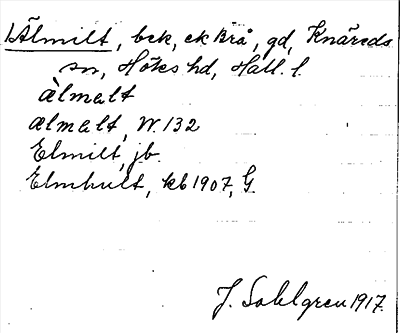 1. Älmilt, bck, ek Brå, gd, Knäreds
sn, Höks hd, Hall. l.
àlmalt
almalt, W. 132
Elmilt, jb.
Elmhult, kb 1907, G.
J. Sahlgren 1917.